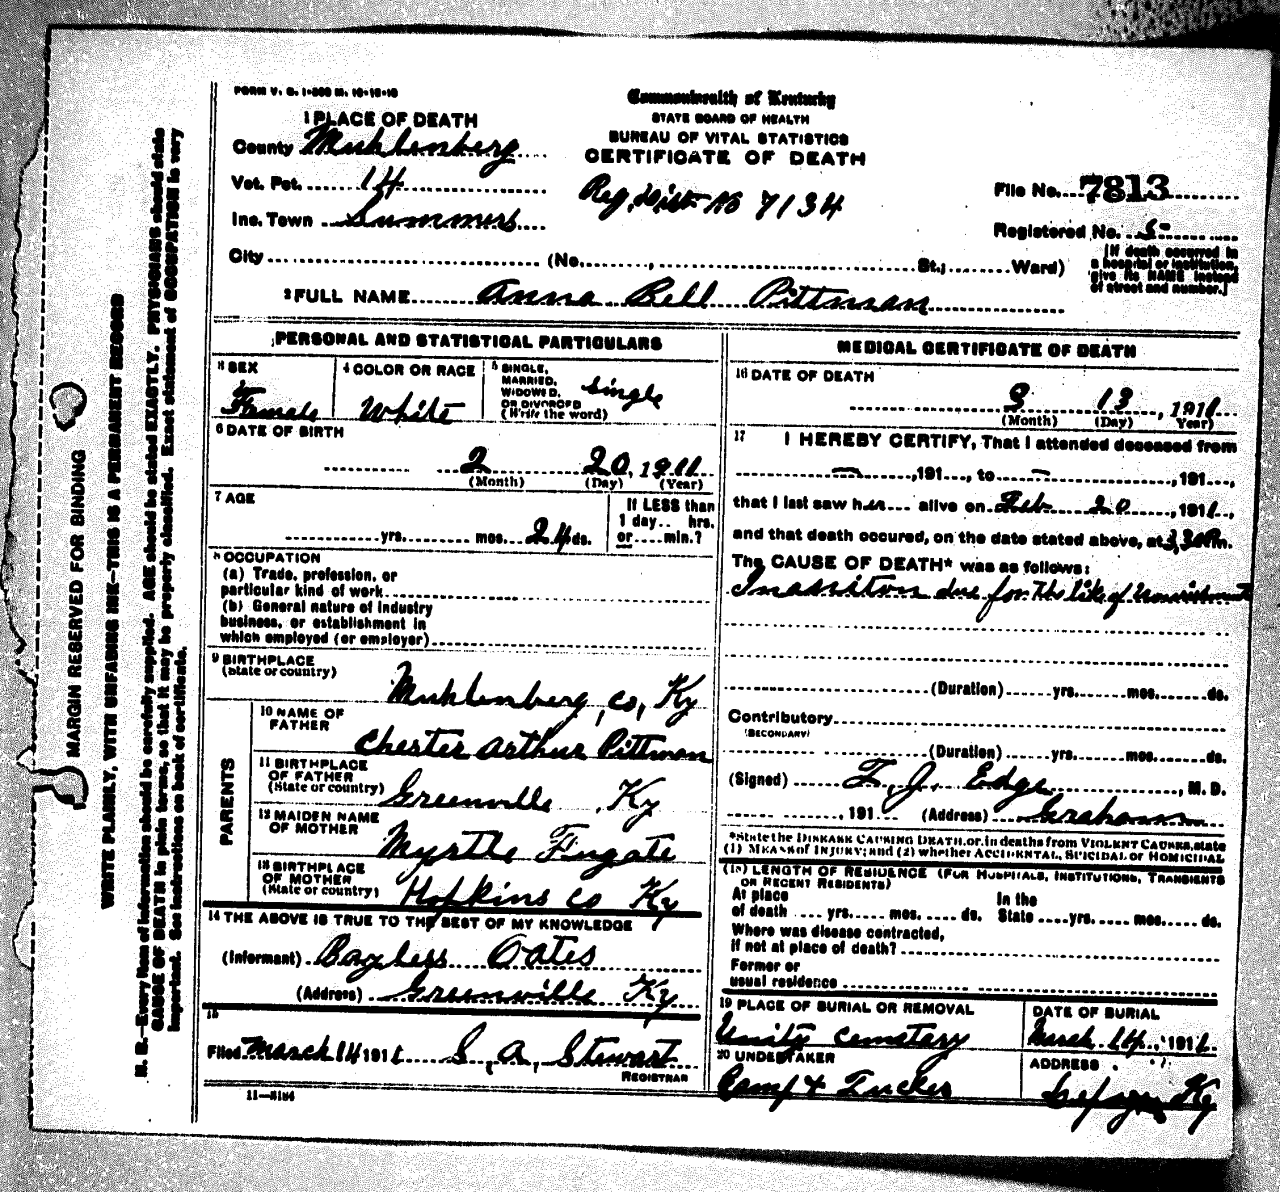 FORM V. S. 1-200 M. 10-18-10
Commonwealth of Kentucky
STATE BOARD OF HEALTH
BUREAU OF VITAL STATISTICS
CERTIFICATE OF DEATH
1 PLACE OF DEATH
County Muhlenberg
Vot. Pct. 14
Inc. Town Summers
City (No. , St.; Ward)
Reg. Dist. No 7134
File No. 7813
Registered No. 5
[If death occurred in
a hospital or institution,
give its NAME instead
of street and number.]
2 FULL NAME Anna Bell Pittman
PERSONAL AND STATISTICAL PARTICULARS
3 SEX
Female
4 COLOR OR RACE
White
5 SINGLE,
MARRIED,
WIDOWED,
OR DIVORCED
(Write the word)
Single
6 DATE OF BIRTH
2 20, 1911
(Month) (Day) (Year)
7 AGE
yrs. mos. 24 ds.
If LESS than
1 day.. hrs.
or.... min.?
8 OCCUPATION
(a) Trade, profession, or
particular kind of work
(b) General nature of industry
business, or establishment in
which employed (or employer)
9 BIRTHPLACE
(State or country)
Muhlenberg, co, Ky
PARENTS
10 NAME OF
FATHER
Chester Arthur Pittman
11 BIRTHPLACE
OF FATHER
(State or country)
Greenville, Ky
12 MAIDEN NAME
OF MOTHER
Myrtle Fugate
13 BIRTHPLACE
OF MOTHER
(State or country)
Hopkins Co Ky
14 THE ABOVE IS TRUE TO THE BEST OF MY KNOWLEDGE
(Informant) Bayless Oates
(Address) Greenville Ky
15
Filed March 14 1911 S, A, Stewart
REGISTRAR
11-3184
MEDICAL CERTIFICATE OF DEATH
16 DATE OF DEATH
3 13, 1911
(Month) (Day) Year)
17 I HEREBY CERTIFY, That I attended deceased from
, 191...., to , 191....,
that I last saw her alive on Feb 20, 1911,
and that death occured, on the date stated above, at 3,30 P.m.
The CAUSE OF DEATH* was as follows:
Inanition due for the like of Nourishment
(Duration) yrs. mos. ds.
Contributory
(SECONDARY)
(Duration) yrs. mos. ds.
(Signed) T. J. Edge, M. D.
, 191 (Address) Graham
*State the DISEASE CAUSING DEATH, or, in deaths from VIOLENT CAUSES, state
(1) MEANS of INJURY; and (2) whether ACCIDENTAL, SUICIDAL or HOMICIDAL
(18) LENGTH OF RESIDENCE (FOR HOSPITALS, INSTITUTIONS, TRANSIENTS
OR RECENT RESIDENTS)
At place In the
of death .... yrs. .... mos. .... ds. State .... yrs. .... mos. .... ds.
Where was disease contracted,
if not at place of death?
Former or
usual residence
19 PLACE OF BURIAL OR REMOVAL
Unity Cemetary
DATE OF BURIAL
March 14, 1911
20 UNDERTAKER
Camp & Tucker
ADDRESS
Ky
MARGIN RESERVED FOR BINDING
WRITE PLAINLY, WITH UNFADING INK—THIS IS A PERMANENT RECORD
N. B.—Every item of information should be carefully supplied. AGE should be stated EXACTLY. PHYSICIANS should state
CAUSE OF DEATH in plain terms, so that it may be properly classified. Exact statement of OCCUPATION is very
important. See instructions on back of certificate.